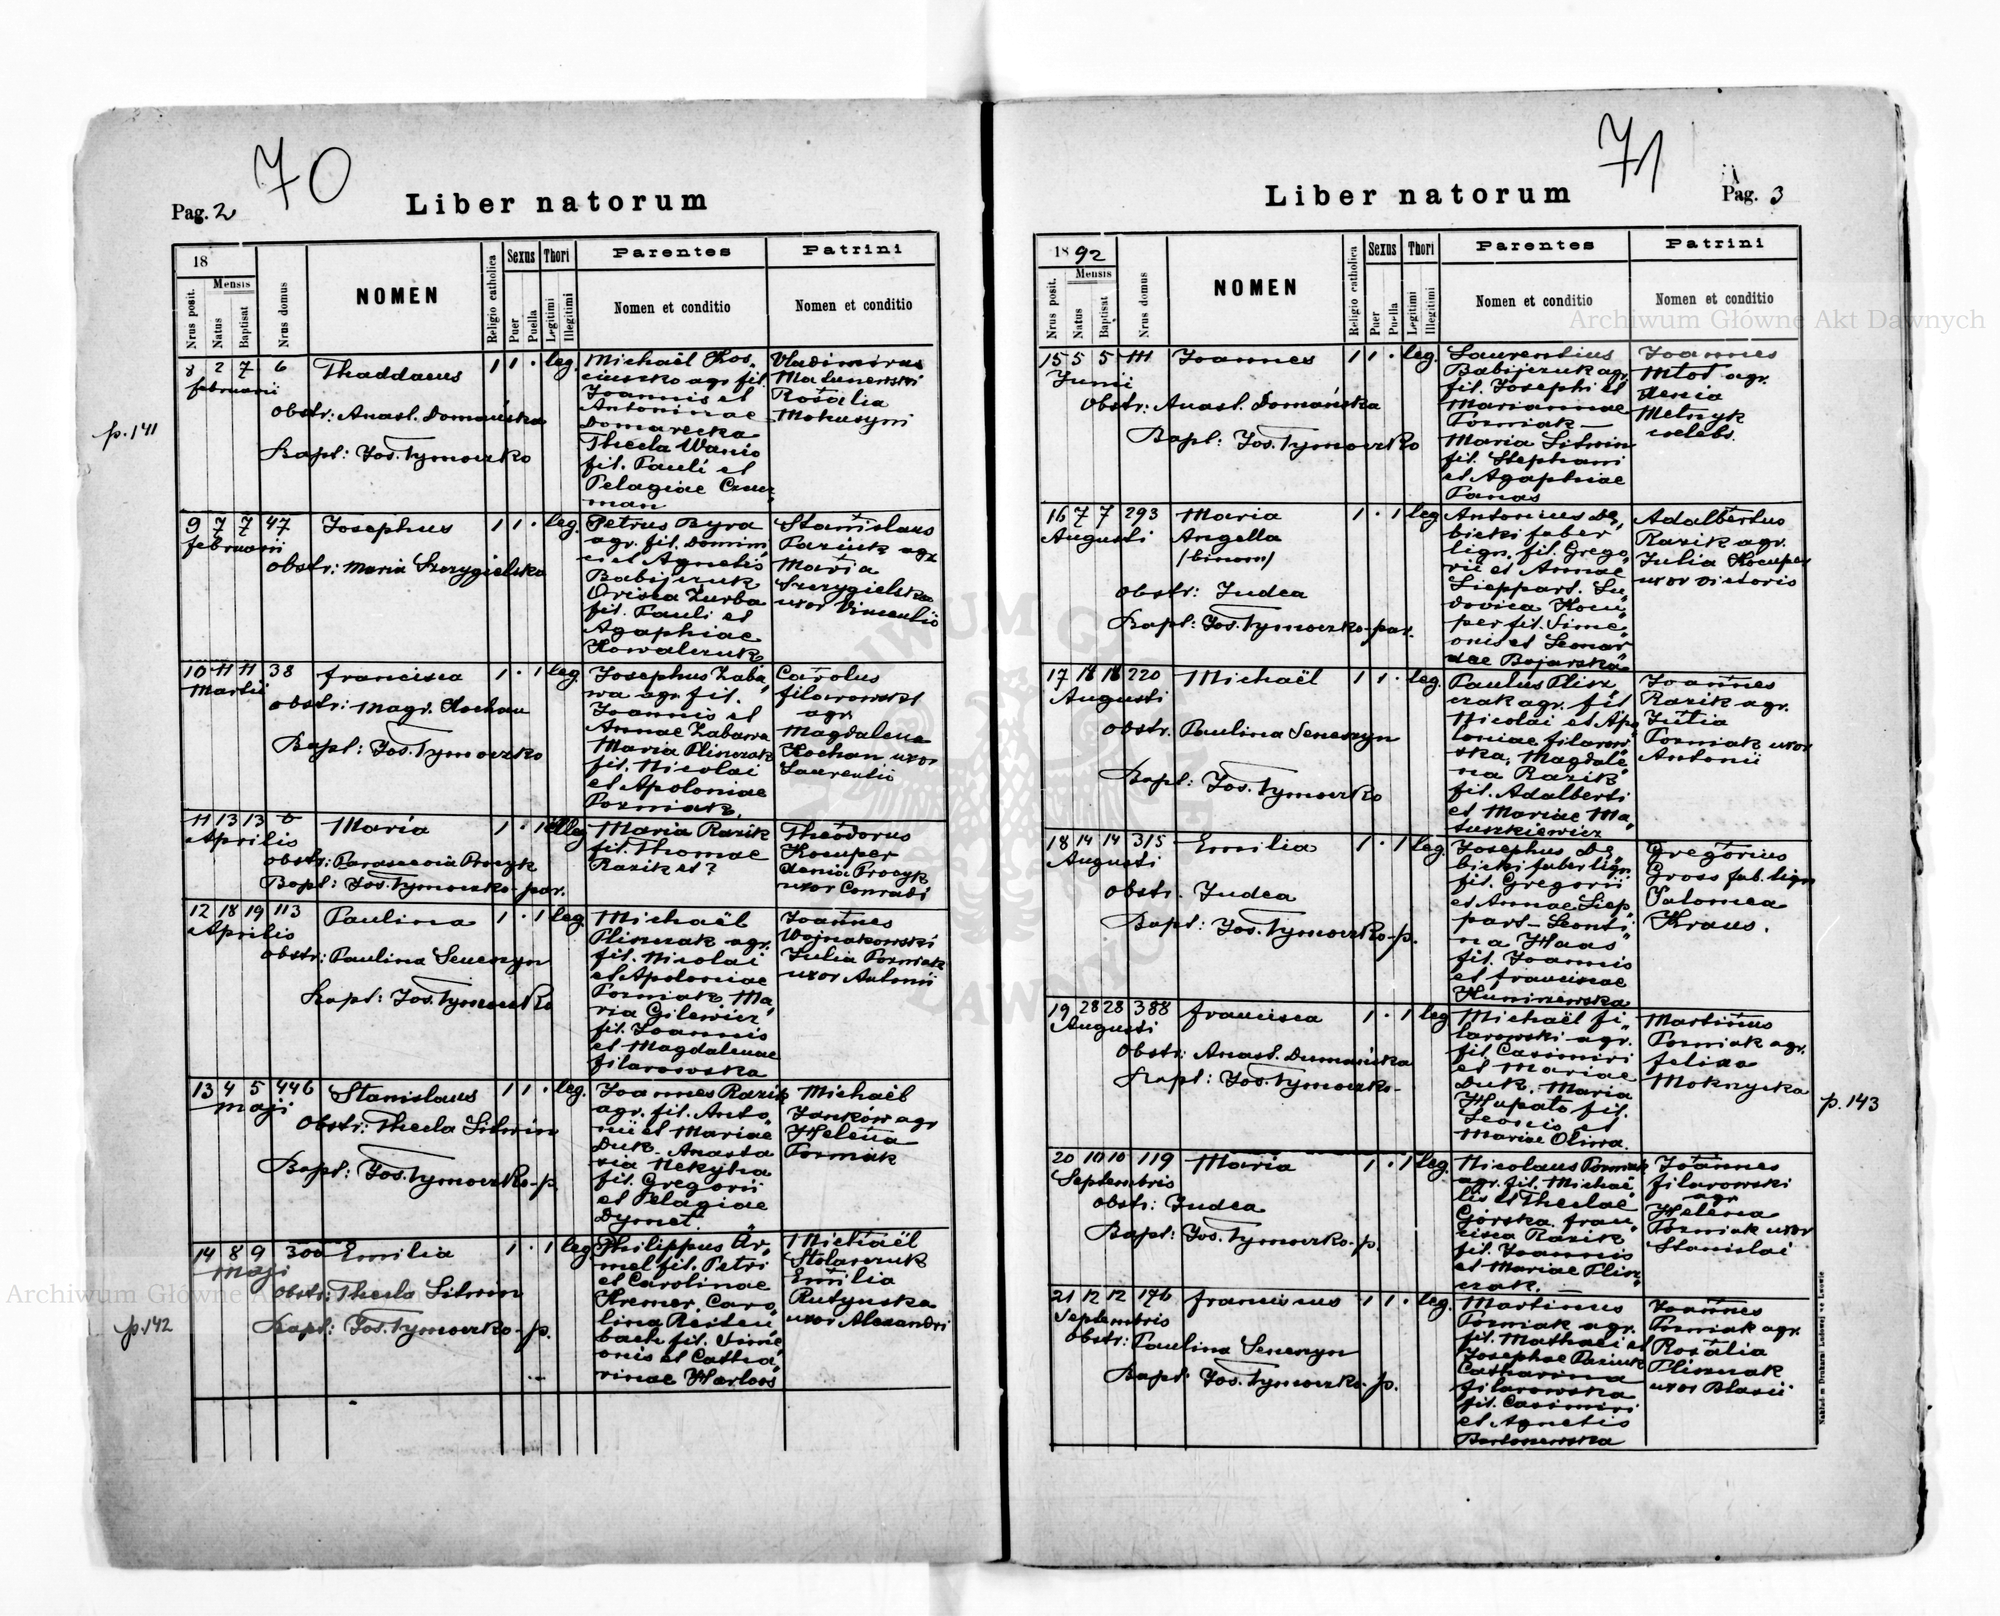 70
Pag. 2
Liber natorum
18
Nrus posit.
Mensis
Natus
Baptisat
Nrus domus
NOMEN
Religio catholica
Sexus
Puer
Puella
Thori
Legitimi
Illegitimi
Parentes
Nomen et conditio
Patrini
Nomen et conditio
8 2 7 6 Thaddaeus 1 1 · leg.
februarii
obstr: Anast. Domańska
Bapt: Jos. Tymoczko
Michaël Kos,
ciuszko agr. fil.
Joannis et
Antoninae
Domarecka
Thecla Wanio
fil. Pauli et
Pelagiae
man
Vladimirus
Malunowski
Rosalia
Mokusyn
p. 141
9 7 7 47 Josephus 1 1 · leg.
februarii
obstr: Maria Szczygielska
Petrus Byra
agr. fil. Domini
ci et Agnetis
Babijczuk
Orisia Zurba
fil. Pauli et
Agaphiae
Kowalczuk
Stanislaus
Paziuk agr.
Maria
Szczygielska
uxor Vincentii
10 11 11 38 francisca 1 · 1 leg.
Martii
obstr: Magr. Kochan
Bapt: Jos. Tymoczko
Josephus Zaba,
wa agr. fil.
Joannis et
Annae Zabawa
Maria Pliszczak
fil. Nicolai
et Apoloniae
Pozniak.
Carolus
filarowski
agr.
Magdalena
Kochan uxor
Laurentii
11 13 13 Maria 1 · 1 illeg
Aprilis
obstr: Parascevia Procyk
Bapt: Jos. Tymoczko - par.
Maria Razik
fil. Thomae
Razik et ?
Theodorus
Kocuper
Xenia Procyk
uxor Conradi
12 18 19 113 Paulina 1 · 1 leg.
Aprilis
obstr: Paulina Seneszyn
Bapt: Jos. Tymoczko
Michaël
Plisznak agr.
fil. Nicolai
et Apoloniae
Pozniak. Ma,
ria Gilewicz
fil. Joannis
et Magdalenae
filarowska
Joannes
Wojnakowski
Julia Pozniak
uxor Antonii
13 4 5 446 Stanislaus 1 1 · leg.
Maji
obstr: Thecla Litwin
Bapt: Jos. Tymoczko - p.
Joannes Razik
agr. fil. Anto
nii et Mariae
Duk. Anasta
sia Nekytka
fil. Gregorii
et Pelagiae
Dymet.
Michaël
Janków agr
Helena
Pozniak
14 8 9 300 Emilia 1 · 1 leg.
Maji
obstr: Thecla Litwin
Bapt: Jos. Tymoczko - p.
Philippus Ur,
mel fil. Petri
et Carolinae
Kremer. Caro,
lina Reiten
bach fil. Sime
onis et Catha,
rinae Harloos
Michaël
Stolarczuk
Emilia
Rutynska
uxor Alexandri
p. 142
71
Liber natorum
Pag. 3
1892
Nrus posit.
Mensis
Natus
Baptisat
Nrus domus
NOMEN
Religio catholica
Sexus
Puer
Puella
Thori
Legitimi
Illegitimi
Parentes
Nomen et conditio
Patrini
Nomen et conditio
15 5 5 111 Joannes 1 1 · leg.
Junii
Obstr: Anast. Domańska
Bapt: Jos. Tymoczko
Laurentius
Babijczuk agr.
fil. Josephi et
Mariannae
Pozniak —
Maria Litwin
fil. Stephani
et Agaphiae
Panas
Joannes
Młot agr.
Xenia
Melnyk
coelebs.
16 7 7 293 Maria 1 · 1 leg
Augusti
Angella
(binom)
obstr: Judea
Bapt: Jos. Tymoczko - par.
Antonius De,
bicki faber
lign. fil. Grego,
rii et Annae
Lieppart. Lu,
dovica Kocu,
per fil. Sime,
onis et Leonar
dae Bojarska
Adalbertus
Razik agr.
Julia Kocuper
uxor Victoris
17 16 16 220 Michaël 1 1 · leg.
Augusti
obstr. Paulina Seneszyn
Bapt: Jos. Tymoczko
Paulus Plisz
czak agr. fil
Nicolai et Apo
loniae filarow
ska, Magdale
na Razik
fil. Adalberti
et Mariae Ma,
tuszkiewicz
Joannes
Razik agr.
Julia
Pozniak uxor
Antonii
18 14 14 315 Emilia 1 · 1 leg.
Augusti
obstr. Judea
Bapt: Jos. Tymoczko - p.
Josephus De,
bicki faber lign.
fil. Gregorii
et Annae Liep,
part - Leonti,
na Haas
fil. Joannis
et franciscae
Huniszewska
Gregorius
Gross fab. lign
Salomea
Kraus.
19 28 28 388 francisca 1 · 1 leg
Augusti
obstr: Anast. Dumańska
Bapt: Jos. Tymoczko -
Michaël fi,
larowski agr.
fil. Casimiri
et Mariae
Duk. Maria
Hupało fil.
Leonis et
Mariae Oliwa.
Martinus
Pozniak agr.
felixa
Moknycka
p. 143
20 10 10 119 Maria 1 · 1 leg.
Septembris
obstr: Judea
Bapt: Jos. Tymoczko - p.
Nicolaus Pozniak
agr. fil. Michaë
lis et Theclae
Górska. fran,
cisca Razik
fil. Joannis
et Mariae Plisz,
czak. —
Joannes
filarowski
agr
Helena
Pozniak uxor
Stanislai
21 12 12 176 franciscus 1 1 · leg.
Septembris
obstr: Paulina Seneszyn
Bapt: Jos. Tymoczko - p.
Martinus
Pozniak agr.
fil. Mathaei et
Josephae Paziuk
Catharina
filarowska
fil. Casimiri
et Agnetis
Bartoszewska
Joannes
Pozniak agr.
Rosalia
Plisznak
uxor Blasii
Nakładem Drukarni Ludowej we Lwowie
Archiwum Główne Akt Dawnych
Archiwum Główne Akt Dawnych